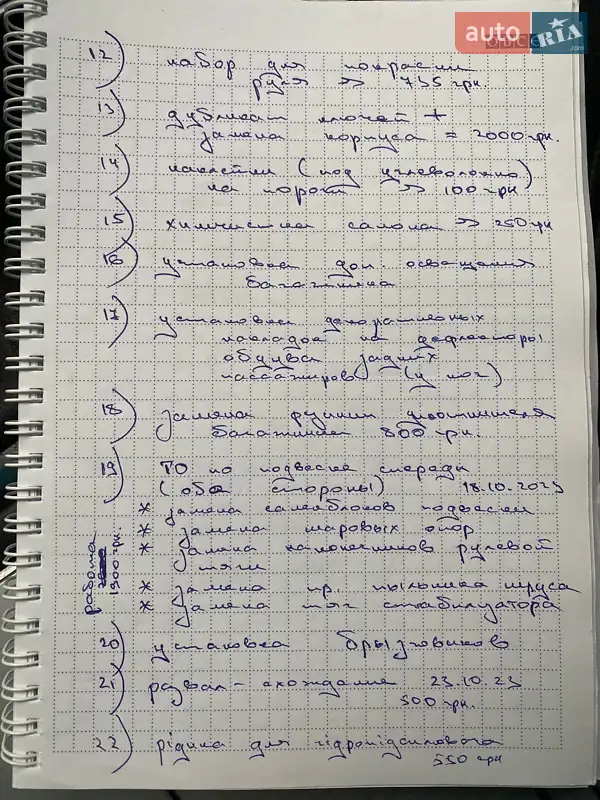 auto RIA .com
12) набор для покраски
руля => 735 грн.
13) дубликат ключей +
замена корпуса = 2000 грн.
14) наклейки (под углеволокно)
на пороги => 100 грн
15) химчистка салона => 250 грн
16) установка доп. освещения
багажника
17) установка декоративных
накладок на дефлекторы
обдува задних
пассажиров (у ног)
18) замена резинки уплотнителя
багажника 800 грн.
19) ТО по подвеске спереди
(обе стороны) 18.10.2023
* замена саленблоков подвески
* замена шаровых опор
* замена наконечников рулевой
тяги
* замена пр. пыльника шруса
* замена тяг стабилизатора
работа
1900 грн.
20) установка брызговиков
21) развал-схождение 23.10.23
500 грн.
22) рідина для гідропідсилювача
550 грн